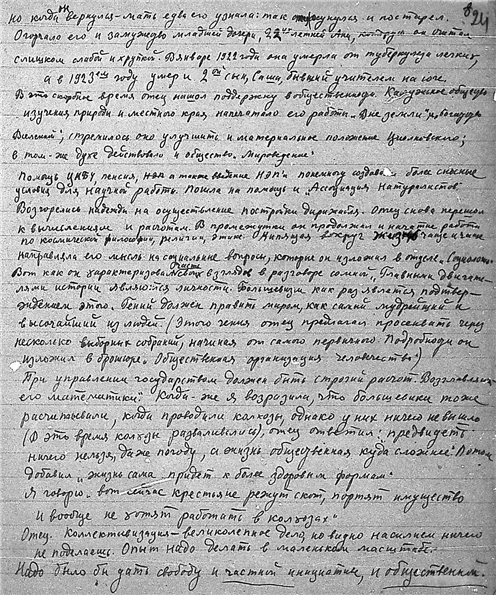 24
но когда он вернулся - мать едва его узнала: так осунулся и постарел.
Огорчало его и замужество младшей дочери, 22 летней Ани, которую он считал
слишком слабой и хрупкой. В январе 1922 года она умерла от туберкулеза легких
а в 1923 году умер и 2ой сын, Саша, бывший учителем на юге.
В это скорбное время отец нашол поддержку в общественности. Калужское общество
изучения природы и местного края напечатало его работы "Вне земли" и "Богатства
Вселенной"; стремилось оно улучшить и материальное положение Циолковского;
в том-же духе действовало и общество "Мироведение"
Помощь ЦКБУ пенсия, а также введение НЭП'а понемногу создавали более сносные
условия для научной работы. Пошла на помощь и "Ассоциация Натуралистов"
Возгорелись надежды на осуществление постройки дирижабля. Отец снова перешол
к вычислениям и расчотам. В промежутках он продолжал и начатые работы
по космической философии, религии, этике. Кипящая вокруг жизнь чаще и чаще
направляла его мысль на социальные вопросы, которые он изложил в отделе "Социология"
Вот как он характеризовал часть своих взглядов в разговоре со мной: "Главными двигате-
лями истории являются личности. Большевизм как раз является подтвер-
ждением этого. Гений должен править миром, как самый мудрейший и
высочайший из людей (Этого гения отец предлагал просеивать через
несколько выборных собраний, начиная от самого первичного. Подробности он
изложил в брошюре "Общественная организация человечества")
При управлении государством должен быть строгий расчот. Возглавлять
его математики". Когда-же я возразила, что большевики тоже
расчитывали, когда проводили калхозы, однако у них ничего не вышло
(В это время колхозы разваливались), отец ответил: "предвидеть
ничего нельзя, даже погоду, а жизнь общественная куда сложнее." Потом
добавил "жизнь сама придет к более здоровым формам"
Я говорю: "вот сейчас крестьяне режут скот, портят имущество
и вообще не хотят работать в колхозах"
Отец. Коллективизация - великолепное дело, но видно насилием ничего
не поделаешь. Опыт надо делать в маленьком масштабе.
Надо было бы дать свободу и частной инициативе, и общественной.